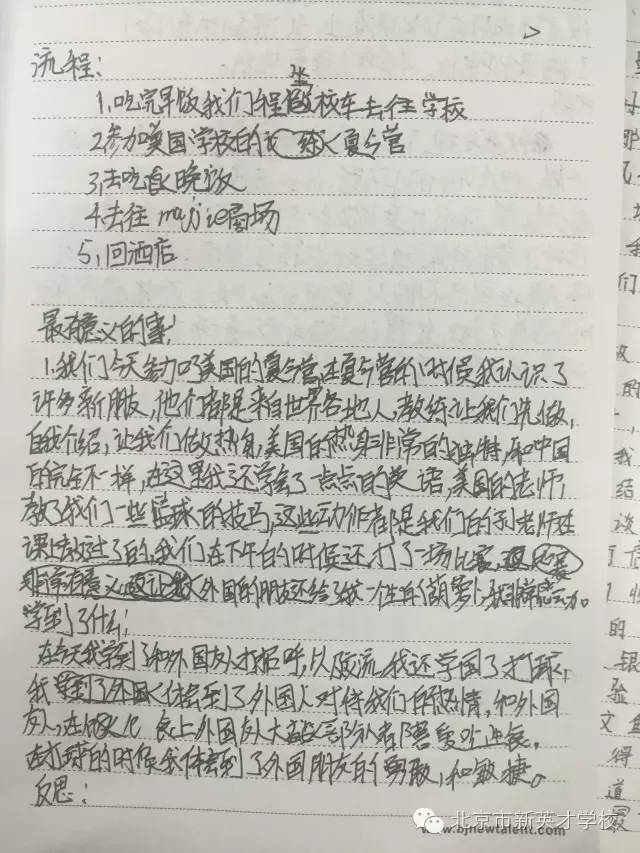 流程：
1.吃完早饭我们坐校车去往学校
2.参加美国学校的夏令营
3.去吃晚饭
4.去往 majie商场
5.回酒店
最有意义的事：
1.我们今天参加了美国的夏令营，在夏令营的时候我认识了
许多新朋友，他们都是来自世界各地人，教练让我们先做
自我介绍，让我们做热身，美国的热身非常的独特，和中国
的完全不一样，在这里我还学会了一点点的英语，美国的老师，
教了我们一些篮球的技巧，这些动作都是我们的孙老师在
课上教过了的，我们在下午的时候还打了一场比赛，
非常有意义 外国的朋友还给了我一个生的胡萝卜，我非常感动
学到了什么：
在今天我学到了和外国友人打招呼，以及交流，我还学到了打球，
我体会到了外国人对待我们的热情，和外国
友人，在饮食上外国友人大部分都喜爱吃
在打球的时候我体会到了外国朋友的勇敢，和敏捷。
反思：
北京市新英才学校
www.bjnewtalent.com